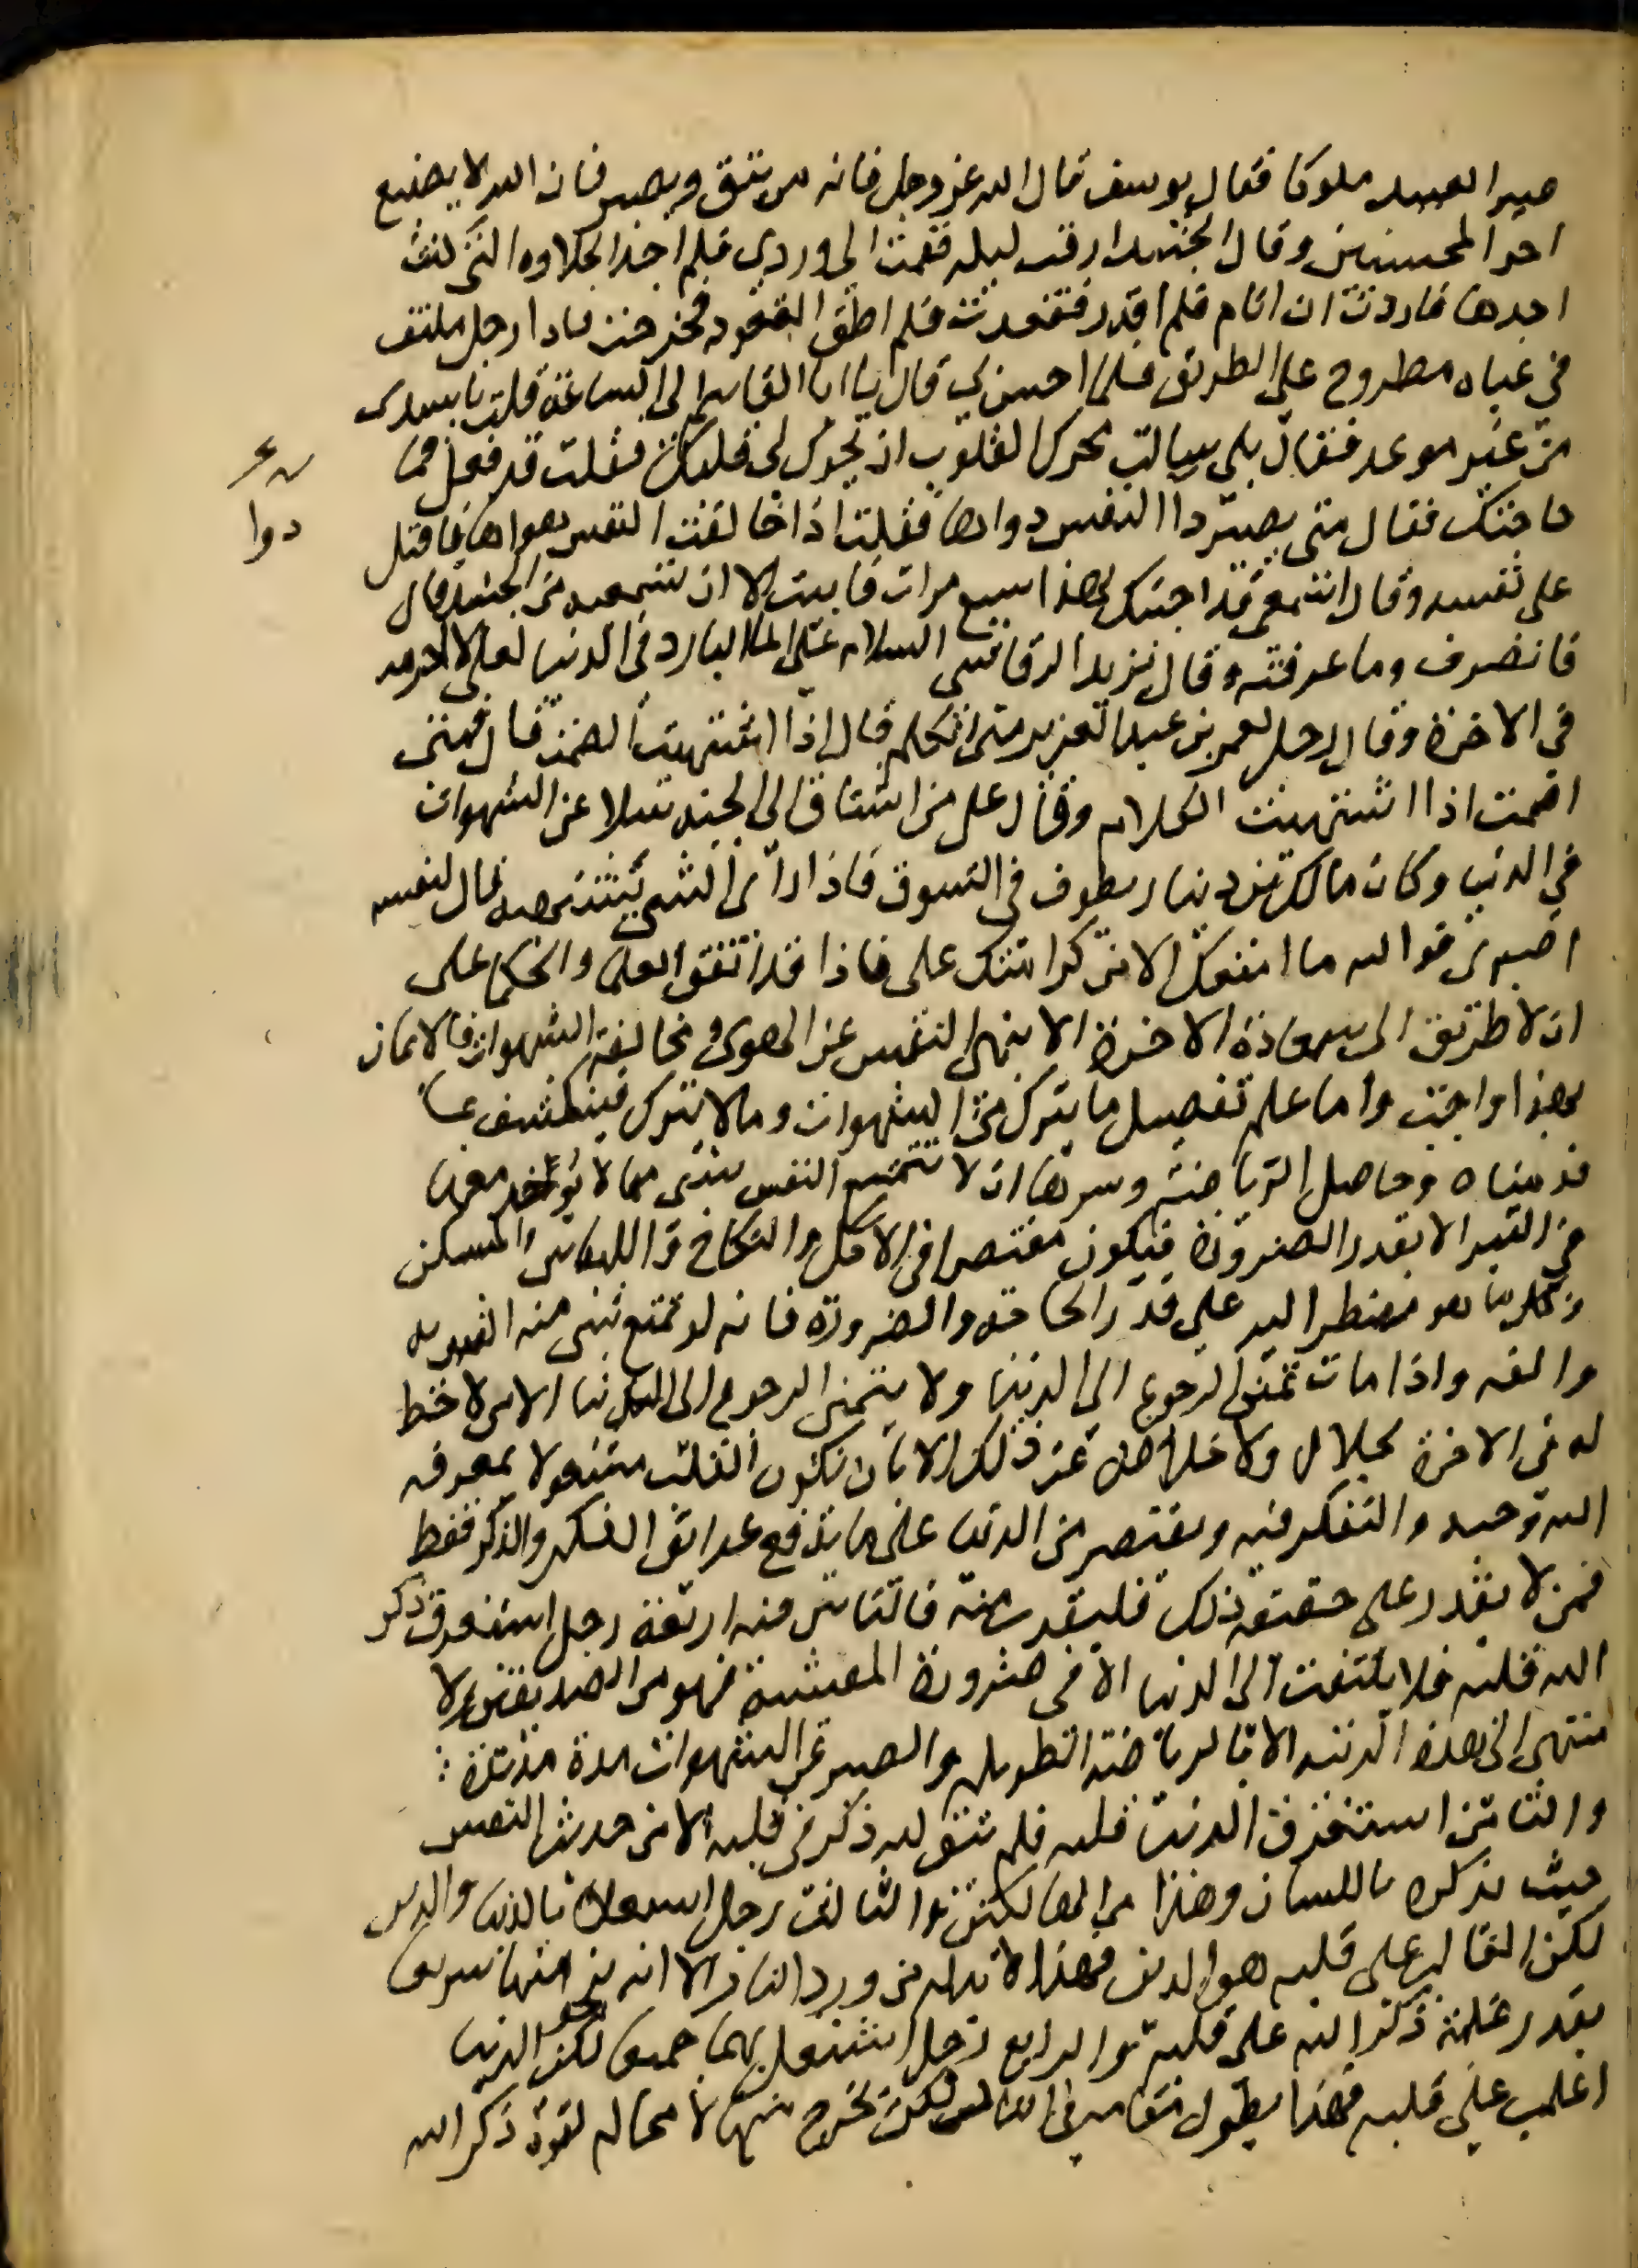 صير العبيد ملوكا فقال يوسف قال الله عز وجل فانه من يتق ويصبر فان الله لا يضيع
اجر المحسنين وقال الجنيد ارقت ليلة فقمت الى وردي فلم اجد الحلاوه التي كنت
اجدها فاردت ان انام فلم اقدر فقعدت فلم اطق القعود فخرجت فاذا رجل ملتف
في عباه مطروح على الطريق فلما احس بي قال يا ابا القاسم الى الساعة قلت يا سيدي
من غير موعد فقال بلى سالت محرك القلوب ان يحرك لي قلبك فقلت قد فعل فما
حاجتك فقال متى يصير دا النفس دواها فقلت اذا خالفت النفس هواها فاقبل
على نفسه وقال اسمعي قد اجبتك بهذا سبع مرات فابيت الا ان تسمعيه من الجنيد قال
فانصرف وما عرفته وقال يزيد الرقاشي السلام على الما البارد في الدنيا لعلي لا احرمه
في الاخرة وقال رجل لعمر بن عبد العزيز متى اتكلم قال اذا اشتهيت الصمت قال فمتى
اصمت اذا اشتهيت الكلام وقال علي من اشتاق الى الجنة سلا عن الشهوات
في الدنيا وكان مالك بن دينار يطوف في السوق فاذا رآى الشى يشتهيه قال لنفسه
اصبري فوالله ما امنعك الا من كرامتك علي فاذا قد اتفق العلما والحكما على
ان لا طريق الى سعادة الاخرة الا بنهي النفس عن الهوى ومخالفة الشهوات فالايمان
بهذا واجب واما علم تفصيل ما يترك من الشهوات وما لا يترك فينكشف بما
قدمناه وحاصل الرياضة وسرها ان لا تتمتع النفس بشى مما لا يوجد معها
في القبر الا بقدر الضرورة فيكون مقتصرا في الاكل والنكاح واللباس والمسكن
وكل ما هو مضطر اليه على قدر الحاجة والضرورة فانه لو تمتع بشى منه انس به
والفه واذا مات تمنى الرجوع الى الدنيا ولا يتمنى الرجوع الى الدنيا الا من لا حظ
له في الاخرة بحال ولا خلاص عن ذلك الا بان يكون القلب مشغولا بمعرفة
الله وحبه والتفكر فيه ويقتصر من الدنيا على ما يدفع عوائق الفكر والذكر فقط
فمن لا يقدر على حقيقة ذلك فليقرب منه فالناس فيه اربعة رجل استغرق ذكر
الله قلبه فلا يلتفت الى الدنيا الا في ضرورة المعيشة فهو من الصديقين ولا
ينتهي الى هذه الرتبة الا بالرياضة الطويلة والصبر عن الشهوات مدة مديدة
والثاني استغرق الدنيا قلبه فلم يبق لله ذكر في قلبه الا من حديث النفس
حيث يذكره باللسان وهذا من الهالكين والثالث رجل اشتغل بالدنيا والدين
لكن الغالب على قلبه هو الدين فهذا لا بد له من ورود النار الا انه ينجو منها سريعا
بقدر غلبة ذكر الله على قلبه والرابع رجل اشتغل بهما جميعا لكن الدنيا
اغلب على قلبه فهذا يطول مقامه في النار لكن يخرج منها لا محالة لقوة ذكر الله
دوا